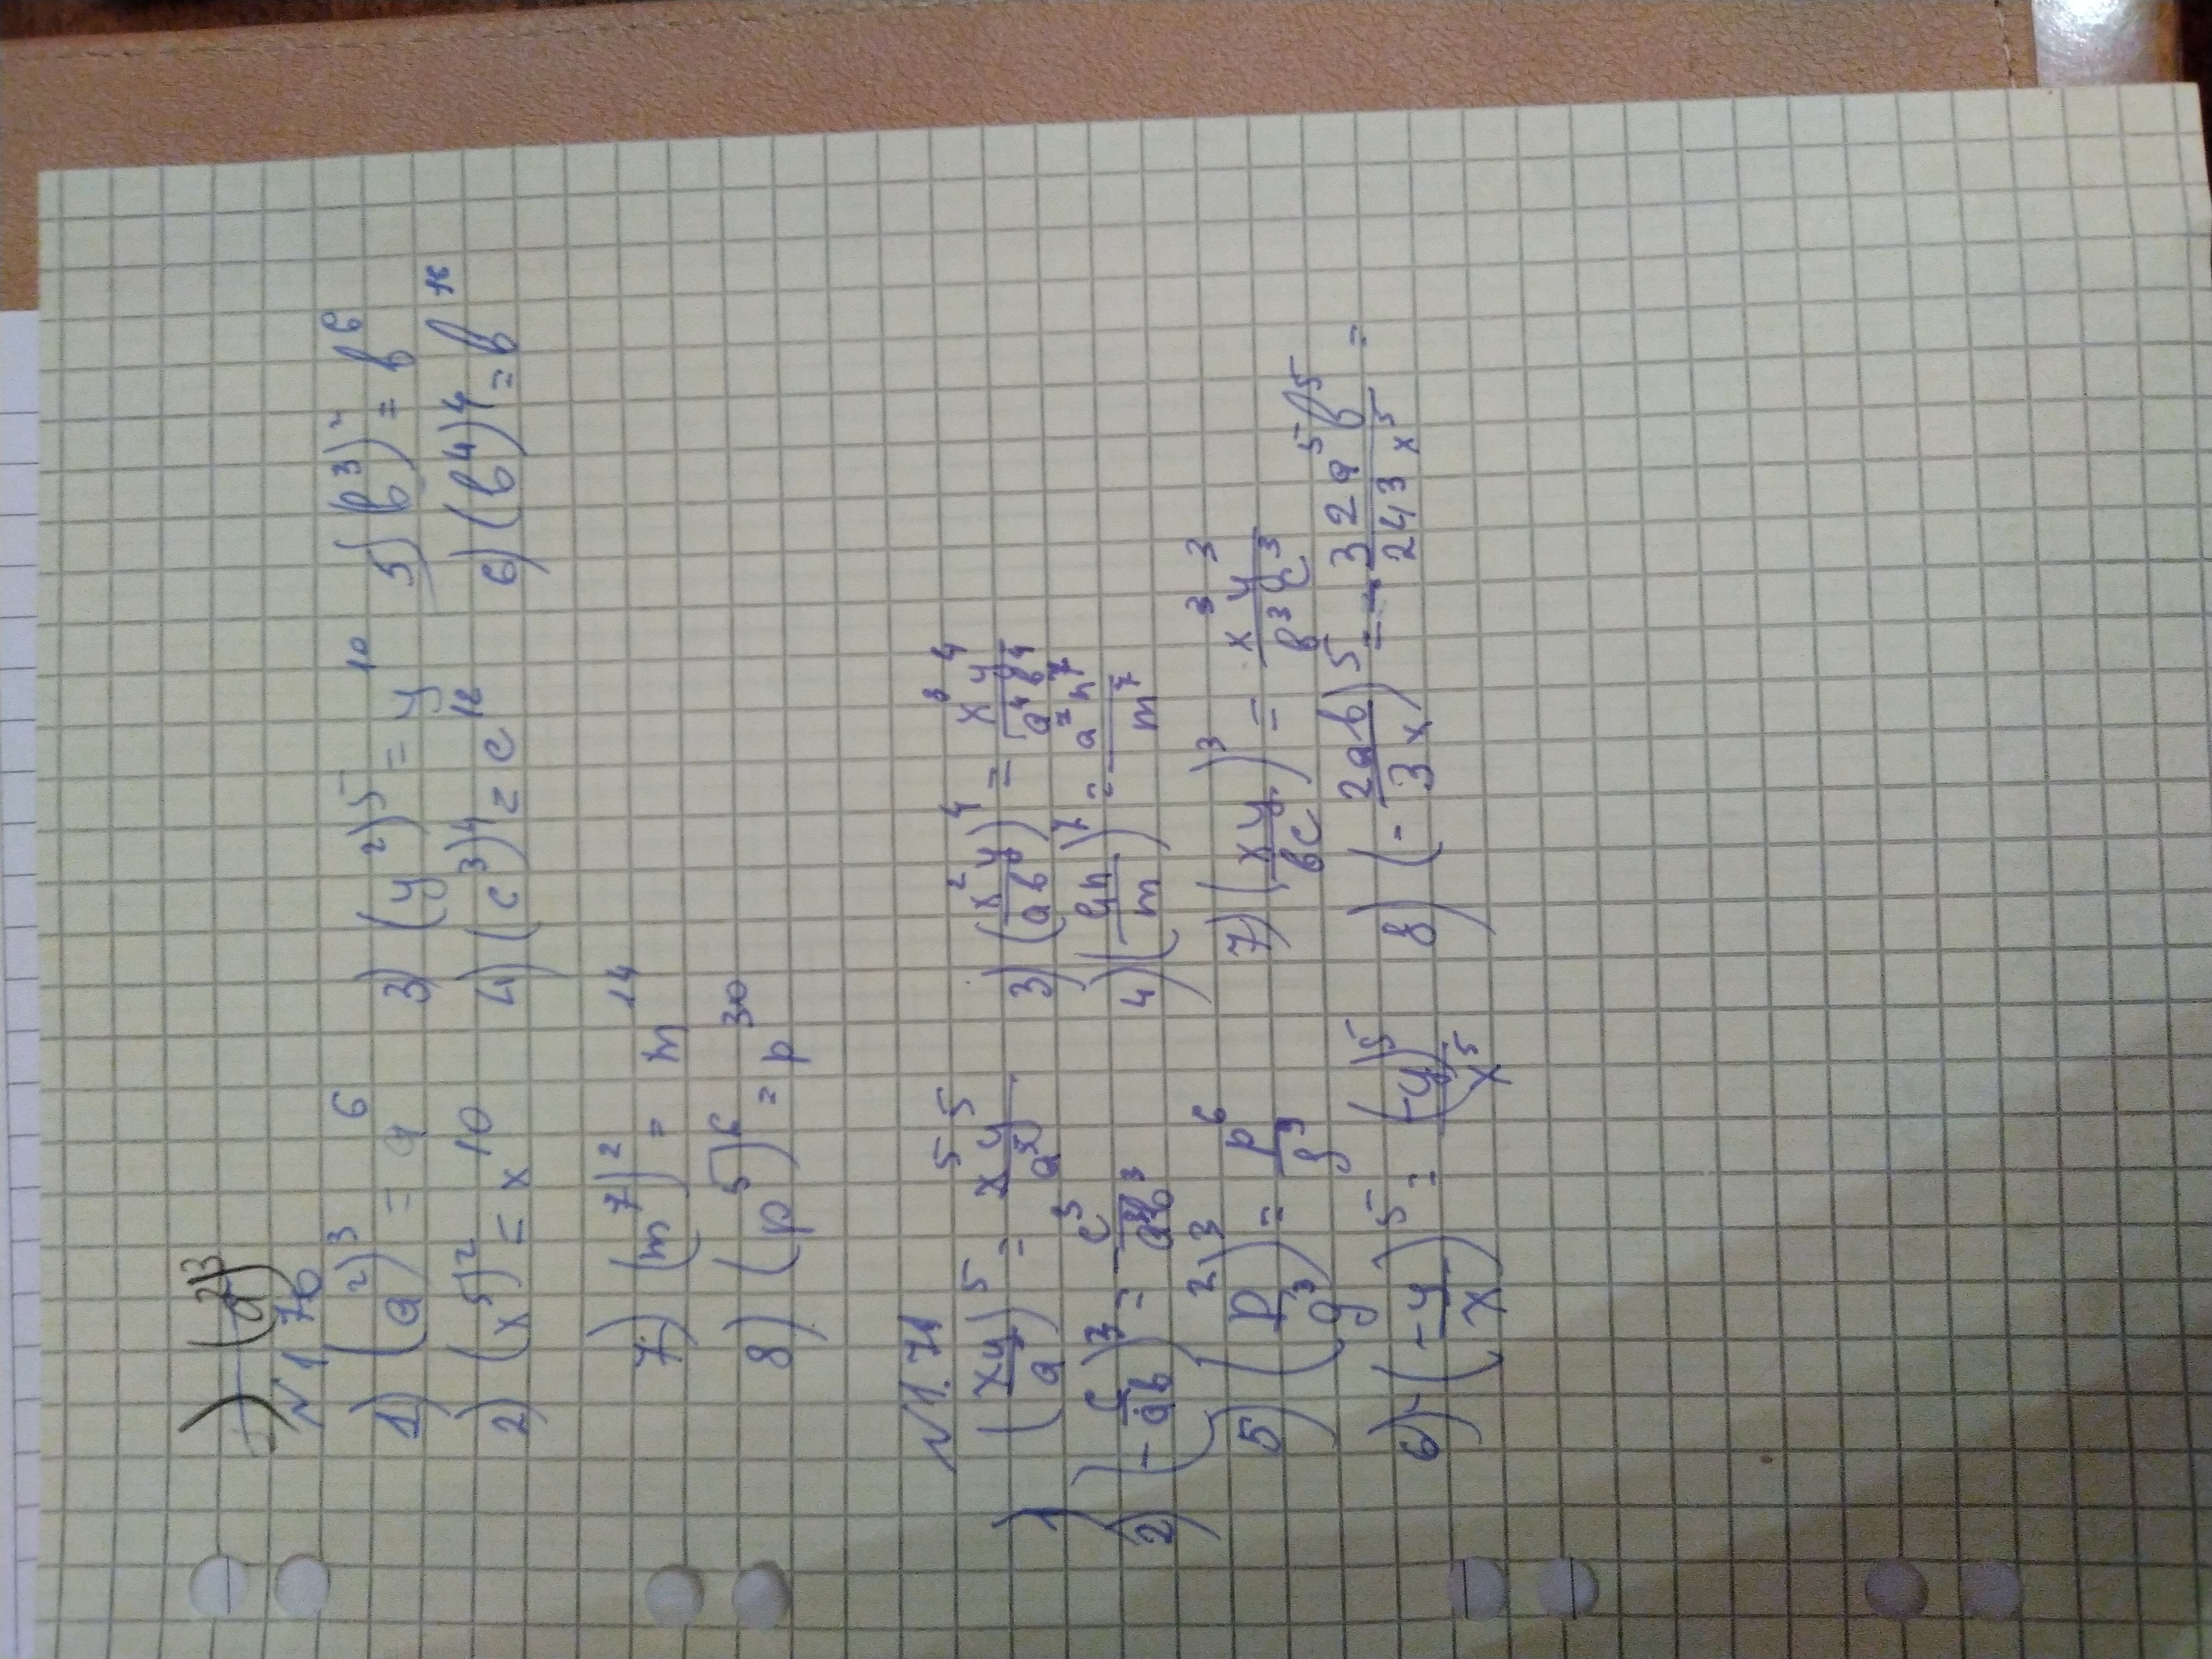 1) (a²)³
N 1 70
1) (a²)³ = a⁶ 3) (y²)⁵ = y¹⁰ 5) (b³)² = b⁶
2) (x⁵)² = x¹⁰ 4) (c³)⁴ = c¹² 6) (b⁴)⁴ = b¹⁶
7) (m⁷)² = m¹⁴
8) (p⁵)⁶ = p³⁰
N 1.71
1) (xy/a)⁵ = x⁵y⁵/a⁵ 3) (x²y/ab)⁴ = x⁸y⁴/a⁴b⁴
2) (-c/ab)³ = -c³/a³b³ 4) (an/m)⁷ = a⁷n⁷/m⁷
5) (p²/g³)³ = p⁶/g⁹ 7) (xy/bc)³ = x³y³/b³c³
6) (-y/x)⁵ = (-y)⁵/x⁵ 8) (-2ab/3x)⁵ = -32a⁵b⁵/243x⁵ =